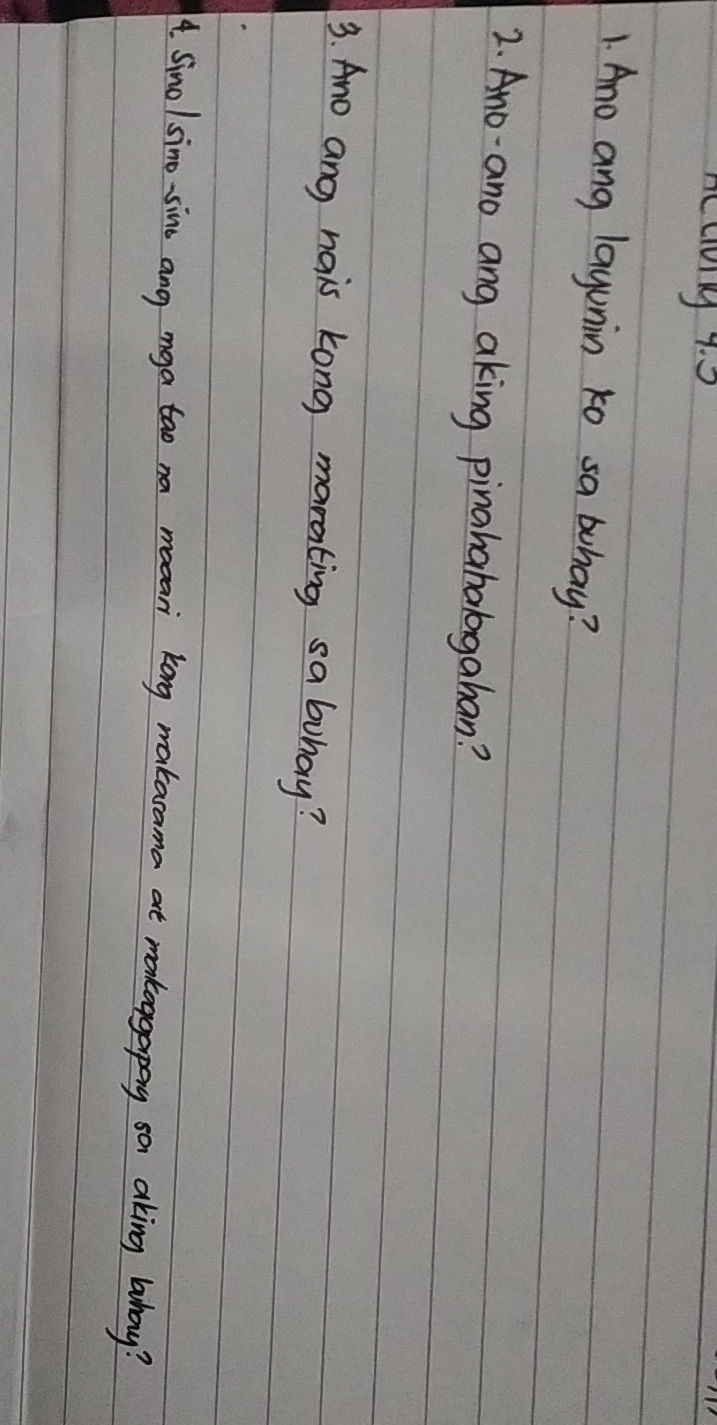 Activity 4.3
1. Ano ang layunin ko sa buhay?
2. Ano-ano ang aking pinahahalagahan?
3. Ano ang nais kong marating sa buhay?
4. Sino/sino-sino ang mga tao na maaari kong makasama at makaagapay sa aking buhay?